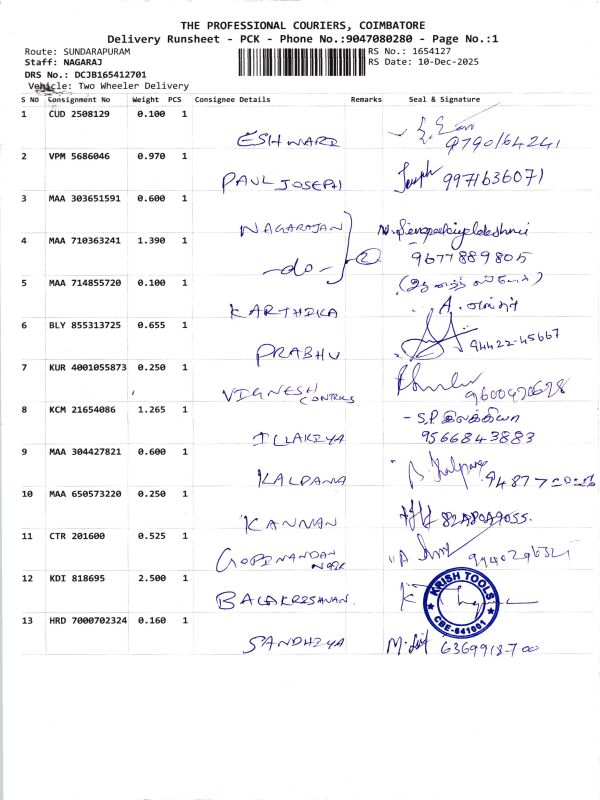 THE PROFESSIONAL COURIERS, COIMBATORE
Delivery Runsheet - PCK - Phone No.:9047080280 - Page No.:1
Route: SUNDARAPURAM RS No.: 1654127
Staff: NAGARAJ RS Date: 10-Dec-2025
DRS No.: DCJB165412701
Vehicle: Two Wheeler Delivery
S NO Consignment No Weight PCS Consignee Details Remarks Seal & Signature
1 CUD 2508129 0.100 1
ESHWARI 9790164241
2 VPM 5686046 0.970 1
PAUL JOSEPH Joseph 9971636071
3 MAA 303651591 0.600 1
NAGARAJAN
4 MAA 710363241 1.390 1
-do- 2 9677889805
5 MAA 714855720 0.100 1
KARTHIKA A.
6 BLY 855313725 0.655 1
PRABHU 94422-45667
7 KUR 4001055873 0.250 1
VIGNESH CONTROLS
8 KCM 21654086 1.265 1
ILLAKIYA - S.P. இலக்கியா
9566843883
9 MAA 304427821 0.600 1
KALPANA
10 MAA 650573220 0.250 1
KANNAN
11 CTR 201600 0.525 1
GOPINANDAN
12 KDI 818695 2.500 1
BALAKRISHNAN. KRISH TOOLS
CBE-641001
13 HRD 7000702324 0.160 1
SANDHIYA 6369918700